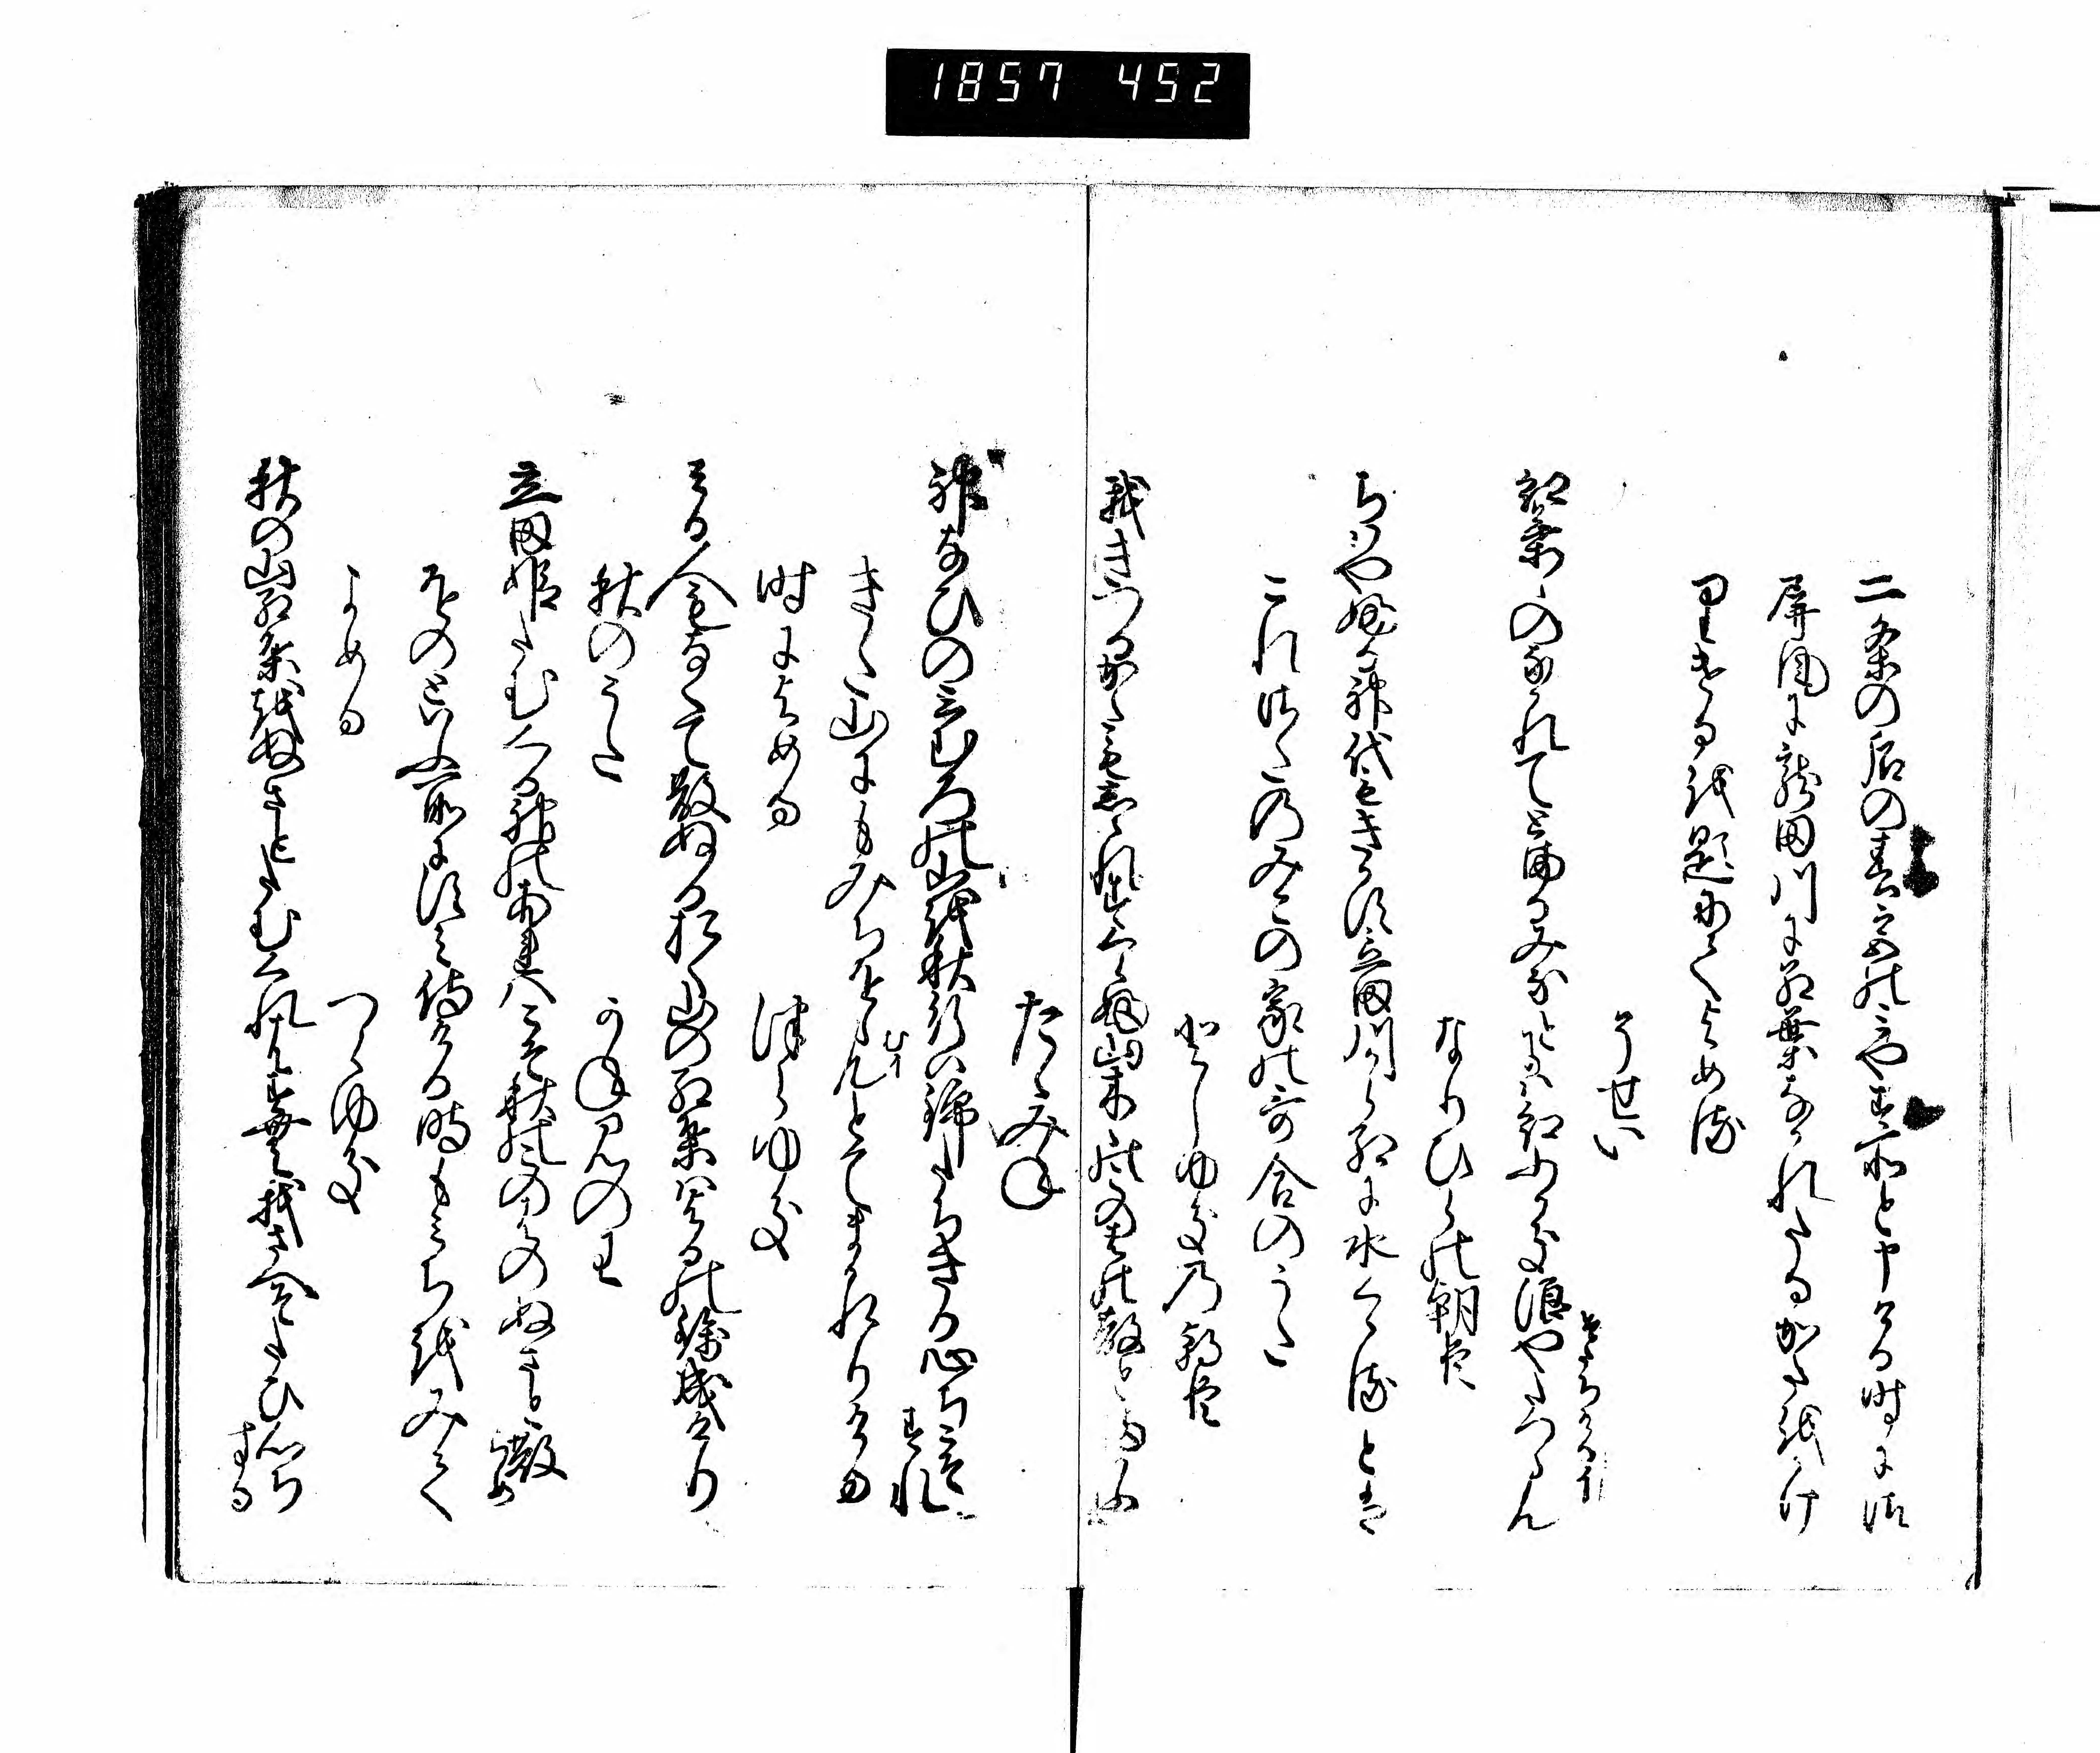 1857 452
二条の后の春宮のみやす所と申ける時に御
屏風に龍田川に紅葉なかれたるかたをかけ
りけるを題にてよめる
そせい
紅葉々のなかれてとまるみなとには紅ふかき浪やたつらん
なりひらの朝臣
ちはやふる神代もきかす立田川から紅に水くゝるとは
これさたのみこの家の哥合のうた
としゆきの朝臣
我きつるかたもしられすくらふ山木々の木の葉の散とまかふに
たゝみね
神なひのみむろの山を秋行は錦たちきる心ちこそすれ
きた山にもみちをらんとてまかれりける
時によめる
つらゆき
みる人もなくて散ぬるおく山の紅葉はよるの錦成けり
秋のうた
かねみの王
立田姫たむくる神のあれはこそ秋の木の葉のぬさと散らめ
をのといふ所にすみ侍ける時もみちをみて
よめる
つらゆき
秋の山紅葉をぬさとたむくれはすむ我さへそたひ心ちする